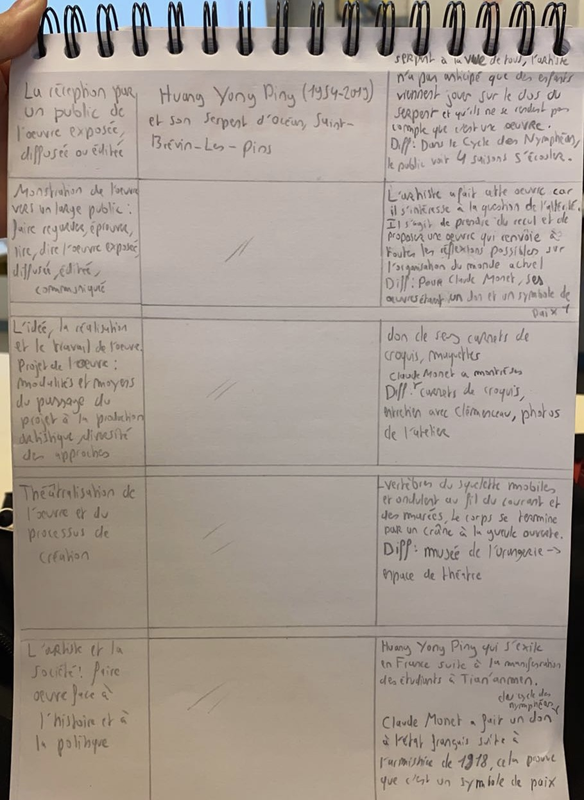 La réception par
un public de
l'œuvre exposée,
diffusée ou éditée
Huang Yong Ping (1954-2019)
et son serpent d'océan, Saint-
Brévin-Les-Pins
serpent à la vue de tous, l'artiste
n'a pas anticipé que des enfants
viennent jouer sur le dos du
serpent et qu'ils ne se rendent pas
compte que c'est une œuvre.
Diff: Dans le Cycle des Nymphéas,
le public voit 4 saisons s'écouler.
Monstration de l'œuvre
vers un large public:
faire regarder, éprouver,
lire, dire l'œuvre exposée,
diffusée, éditée,
communiquée
//
L'artiste a fait cette œuvre car
il s'intéresse à la question de l'altérité.
Il s'agit de prendre du recul et de
proposer une œuvre qui renvoie à
toutes les réflexions possibles sur
l'organisation du monde actuel
Diff: Pour Claude Monet, ses
œuvres étant un don et un symbole de
paix
L'idée, la réalisation
et le travail de l'œuvre.
Projet de l'œuvre:
modalités et moyens
du passage du
projet à la production
artistique, diversité
des approches
//
don de ses carnets de
croquis, maquettes
Claude Monet a montré ses
Diff: carnets de croquis,
entretien avec Clémenceau, photos
de l'atelier
Théâtralisation de
l'œuvre et du
processus de
création
//
-vertèbres du squelette mobiles
et ondulent au fil du courant et
des marées, le corps se termine
par un crâne à la gueule ouverte.
Diff: musée de l'orangerie ->
espace de théâtre
L'artiste et la
société: faire
œuvre face à
l'histoire et à
la politique
//
Huang Yong Ping qui s'exile
en France suite à la manifestation
des étudiants à Tian'anmen.
du cycle des
nymphéas
Claude Monet a fait un don
à l'état français suite à
l'armistice de 1918, cela prouve
que c'est un symbole de paix